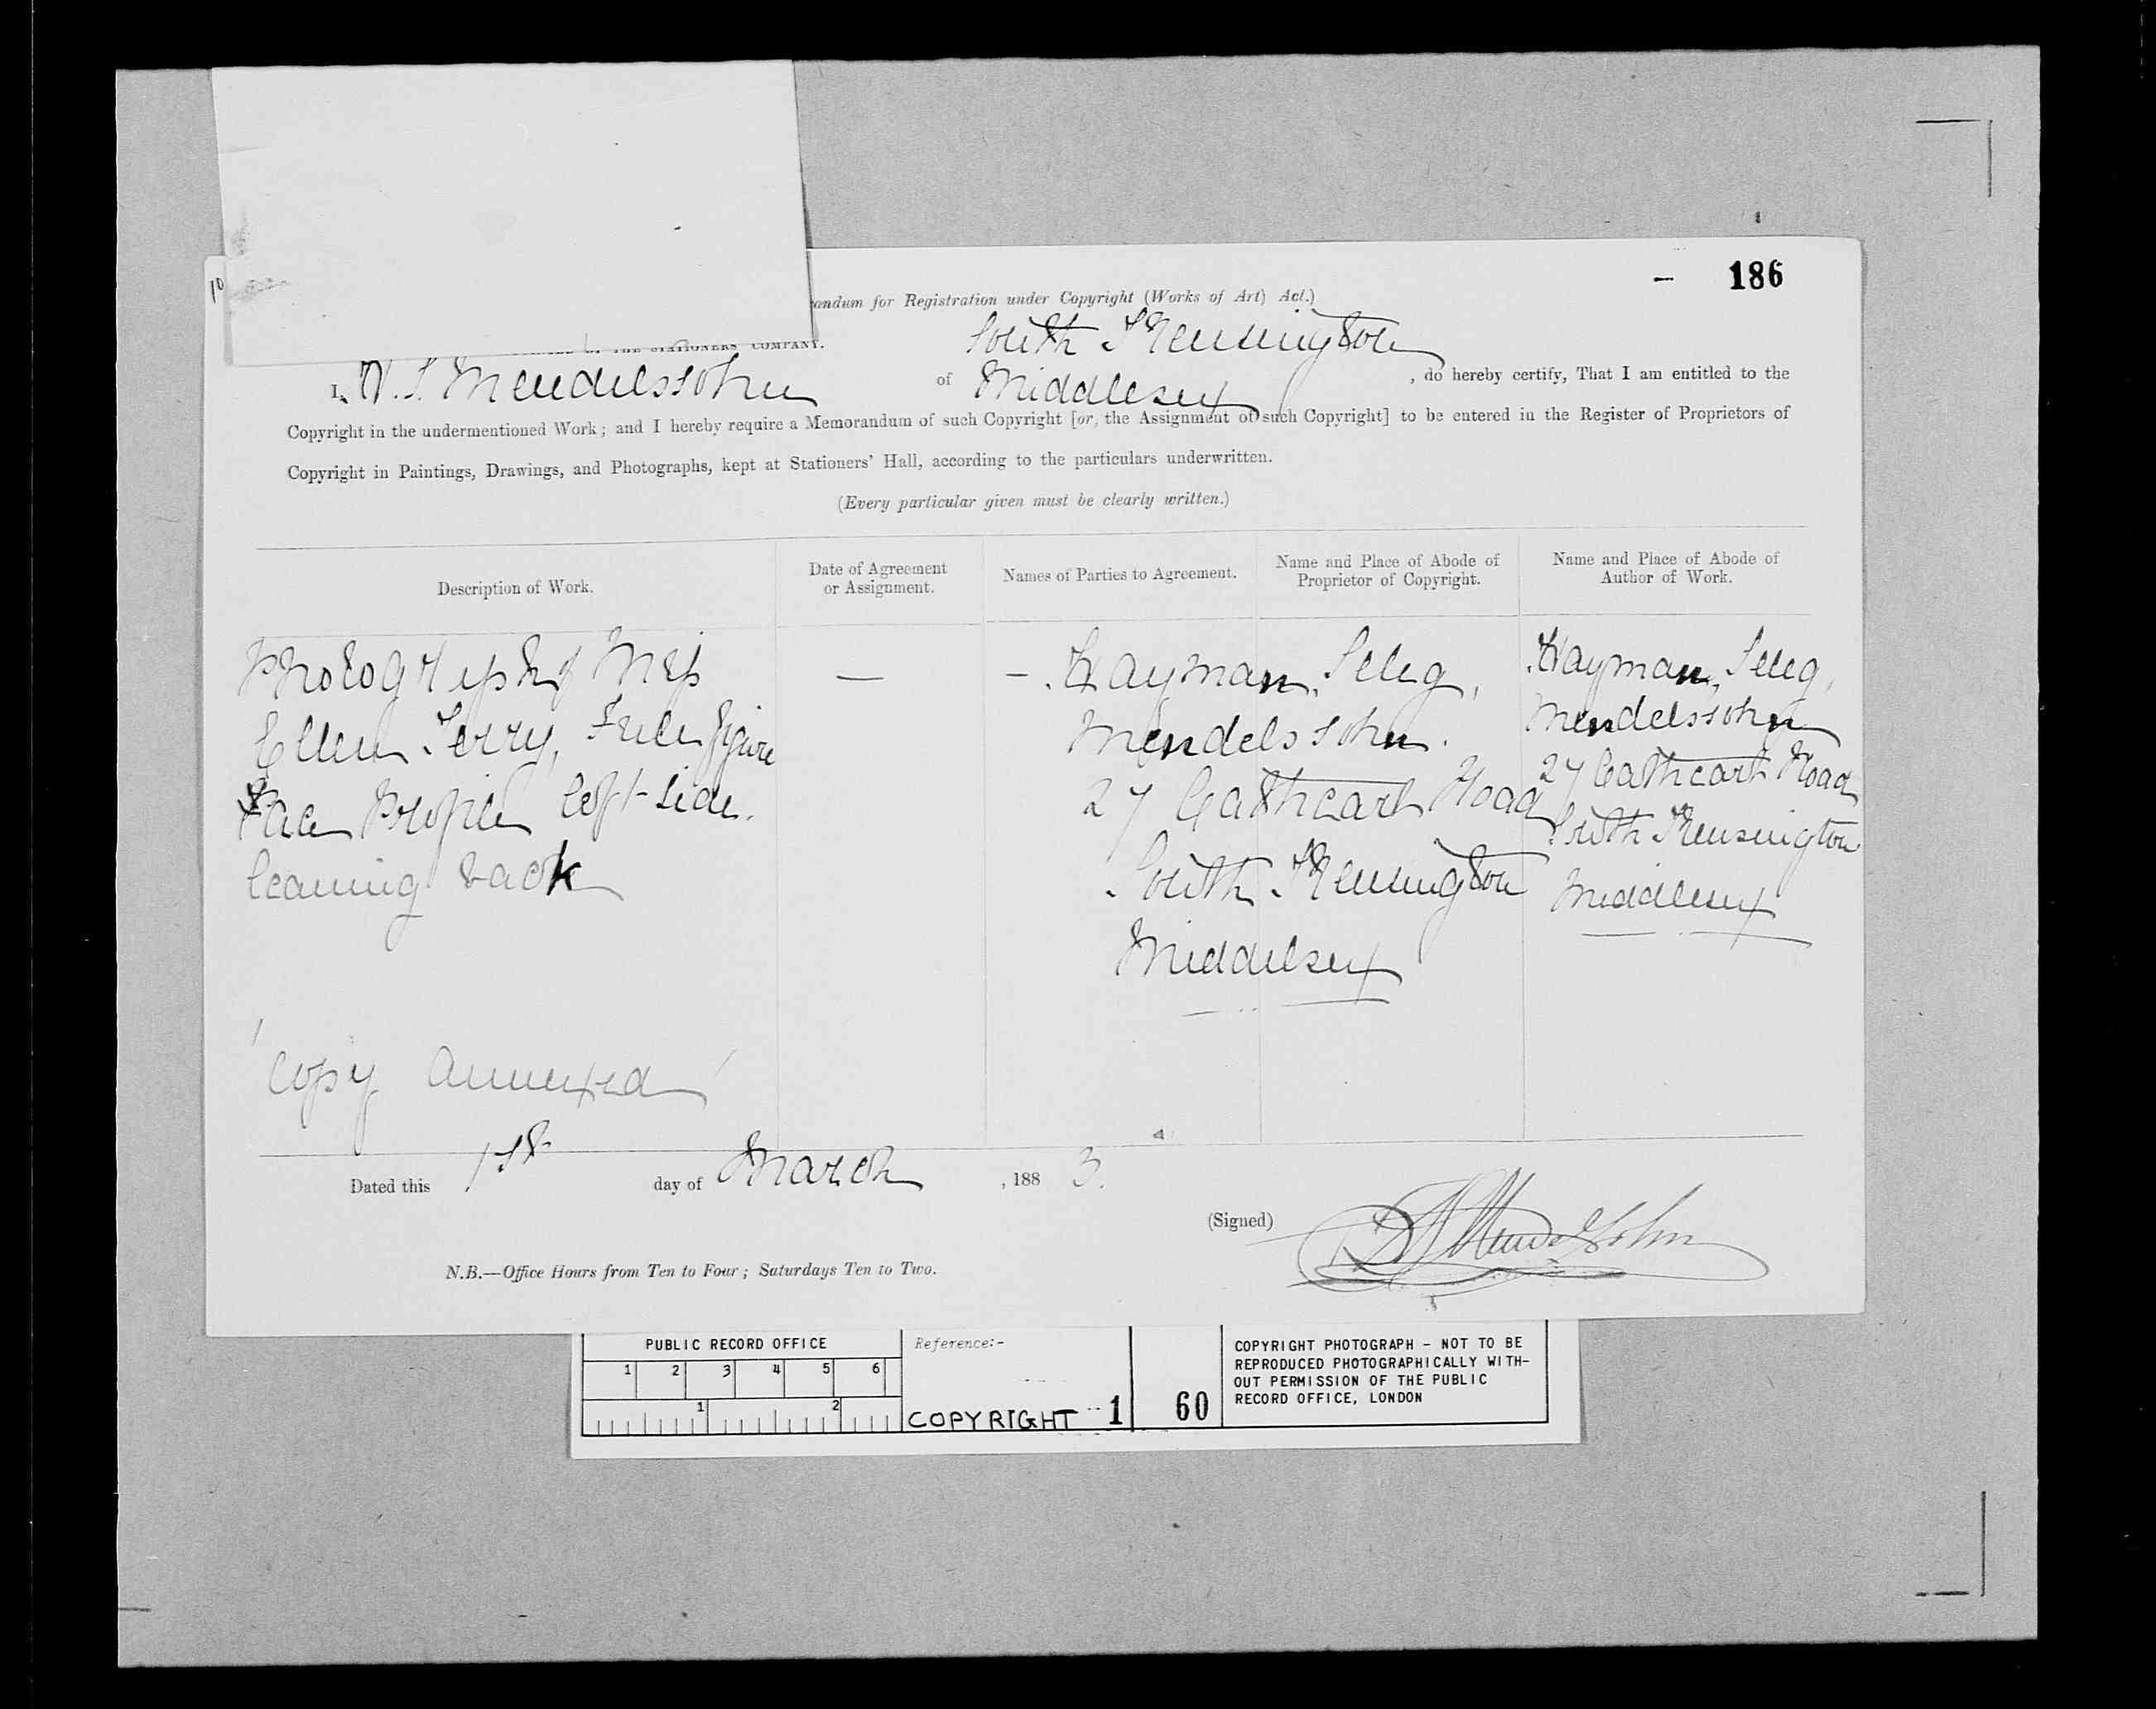 186
andum for Registration under Copyright (Works of Art) Act.)
STATIONERS' COMPANY.
South Kensington
I, H. S. Mendelssohn of Middlesex, do hereby certify, That I am entitled to the
Copyright in the undermentioned Work; and I hereby require a Memorandum of such Copyright [or, the Assignment of such Copyright] to be entered in the Register of Proprietors of
Copyright in Paintings, Drawings, and Photographs, kept at Stationers' Hall, according to the particulars underwritten.
(Every particular given must be clearly written.)
Description of Work.
Date of Agreement
or Assignment.
Names of Parties to Agreement.
Name and Place of Abode of
Proprietor of Copyright.
Name and Place of Abode of
Author of Work.
Photograph of Miss
Ellen Terry, Full figure
Face Profile left side.
leaning back
—
–
Hayman, Seleg,
Mendelssohn.
27 Cathcart Road
South Kensington
Middelsex
Hayman, Seleg,
Mendelssohn
27 Cathcart Road
South Kensington
Middlesex
'Copy annexed'
Dated this 1st day of March, 1883.
(Signed) H S Mendelssohn
N.B.—Office Hours from Ten to Four; Saturdays Ten to Two.
PUBLIC RECORD OFFICE
1 2 3 4 5 6
1 2
Reference:-
COPYRIGHT 1 60
COPYRIGHT PHOTOGRAPH - NOT TO BE
REPRODUCED PHOTOGRAPHICALLY WITH-
OUT PERMISSION OF THE PUBLIC
RECORD OFFICE, LONDON